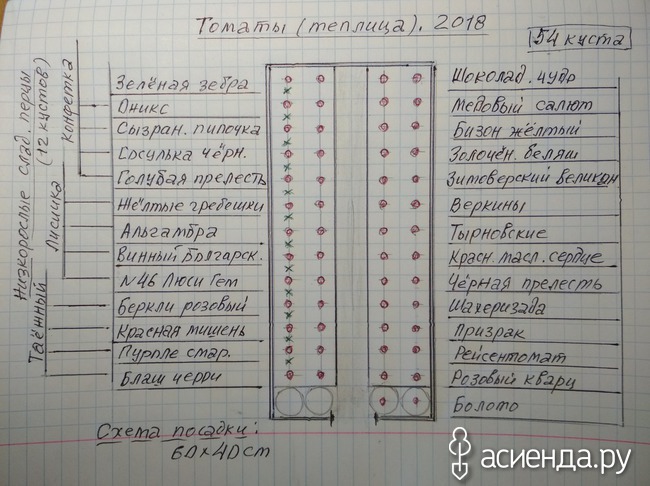 Томаты (теплица). 2018
54 куста
Низкорослые слад. перцы
(12 кустов)
Таённый
Лисичка
Конфетка
Зелёная зебра
Оникс
Сызран. пипочка
Сосулька чёрн.
Голубая прелесть
Жёлтые гребешки
Альгамбра
Винный Болгарск.
N46 Люси Гет
Беркли розовый
Красная мишень
Пурпле смар.
Блаш черри
Шоколад. чудо
Медовый салют
Бизон жёлтый
Золочён. беляш
Зимоверский великан
Веркины
Тырновские
Красн. масл. сердце
Чёрная прелесть
Шахеризада
Призрак
Рейсентомат
Розовый кварц
Болото
Схема посадки:
60х40cm
асиенда.ру